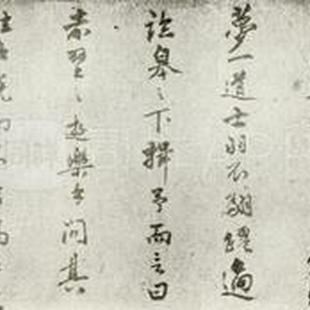 夢一道士羽衣翩躚過
臨皋之下揖予而言曰
赤壁之遊樂乎問其